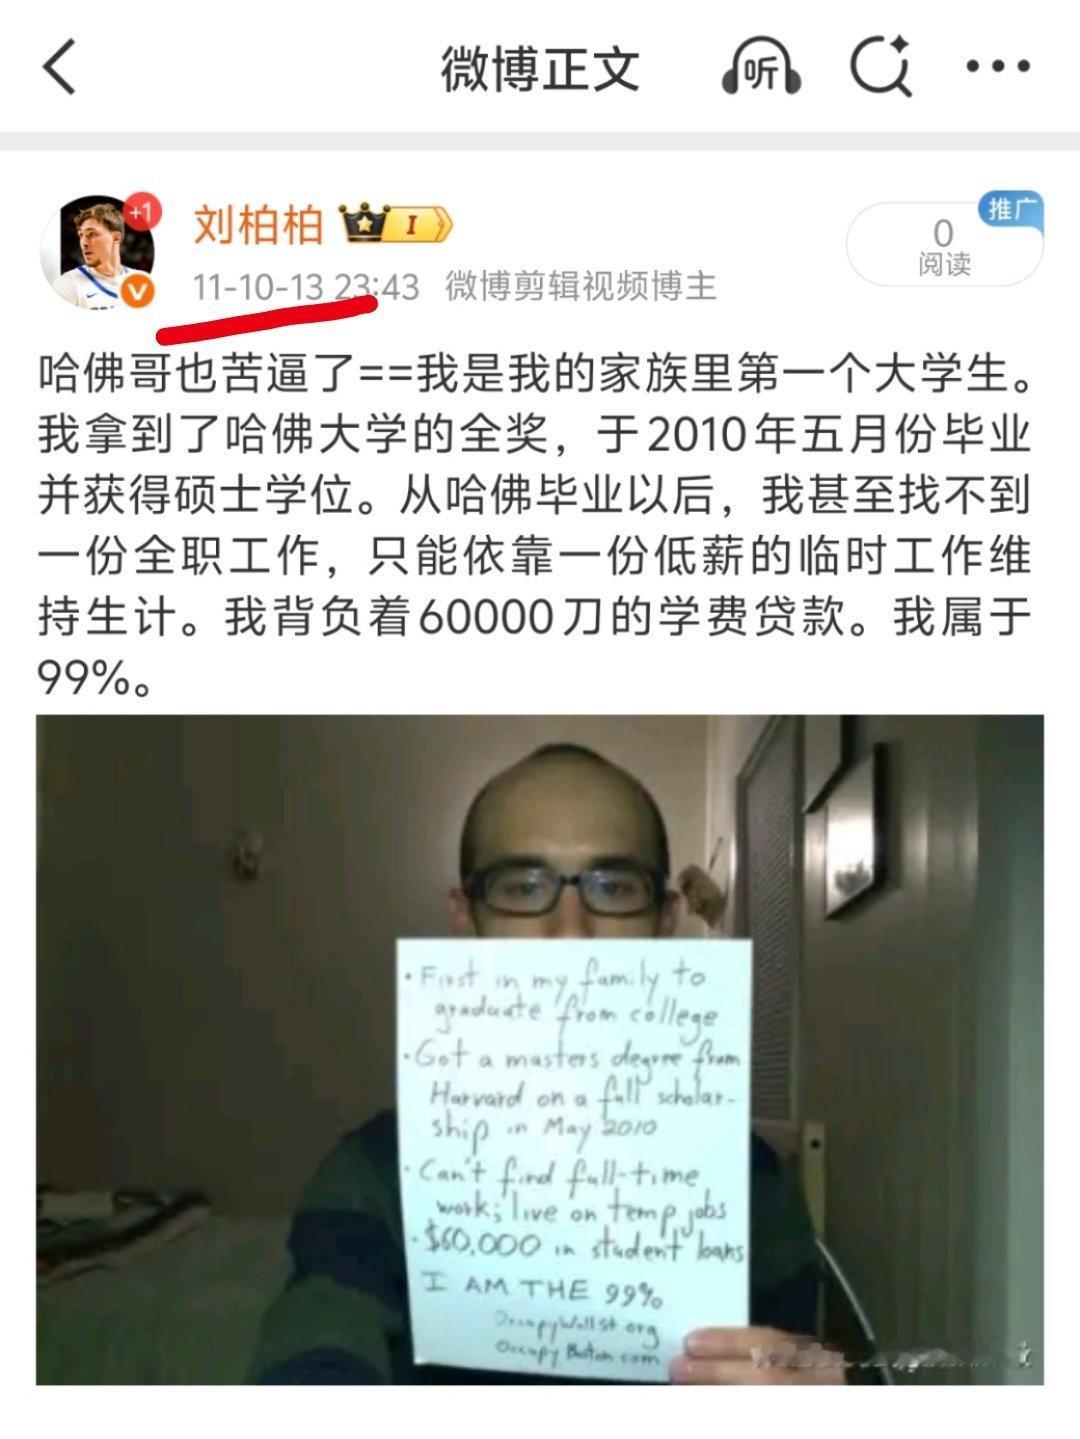 微博正文
听
刘柏柏
I
+1
推广
0
阅读
11-10-13 23:43 微博剪辑视频博主
哈佛哥也苦逼了==我是我的家族里第一个大学生。
我拿到了哈佛大学的全奖，于2010年五月份毕业
并获得硕士学位。从哈佛毕业以后，我甚至找不到
一份全职工作，只能依靠一份低薪的临时工作维
持生计。我背负着60000刀的学费贷款。我属于
99%。
• First in my family to
graduate from college
• Got a masters degree from
Harvard on a full scholar-
ship in May 2010
• Can't find full-time
work; live on temp jobs
• $60,000 in student loans
I AM THE 99%
OccupyWallSt.org
Occupy Boston.com